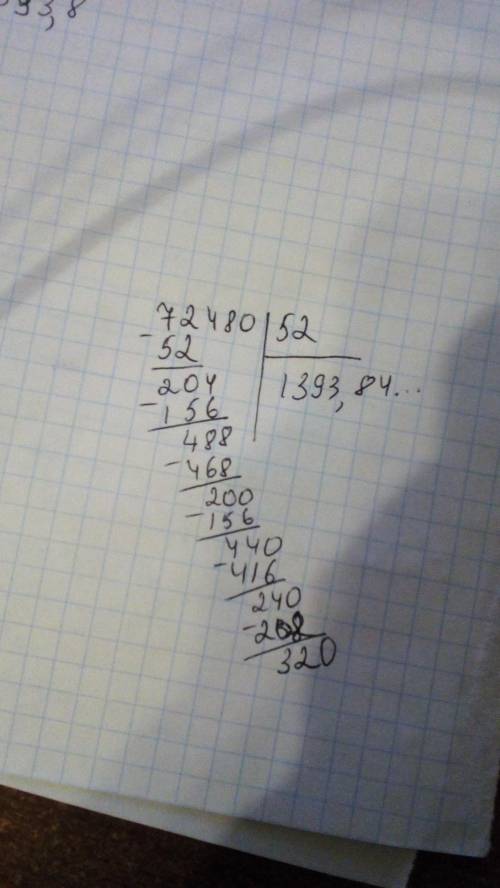 93,8
72480 | 52
- 52
204 1393,84...
- 156
488
- 468
200
- 156
440
- 416
240
- 208
320